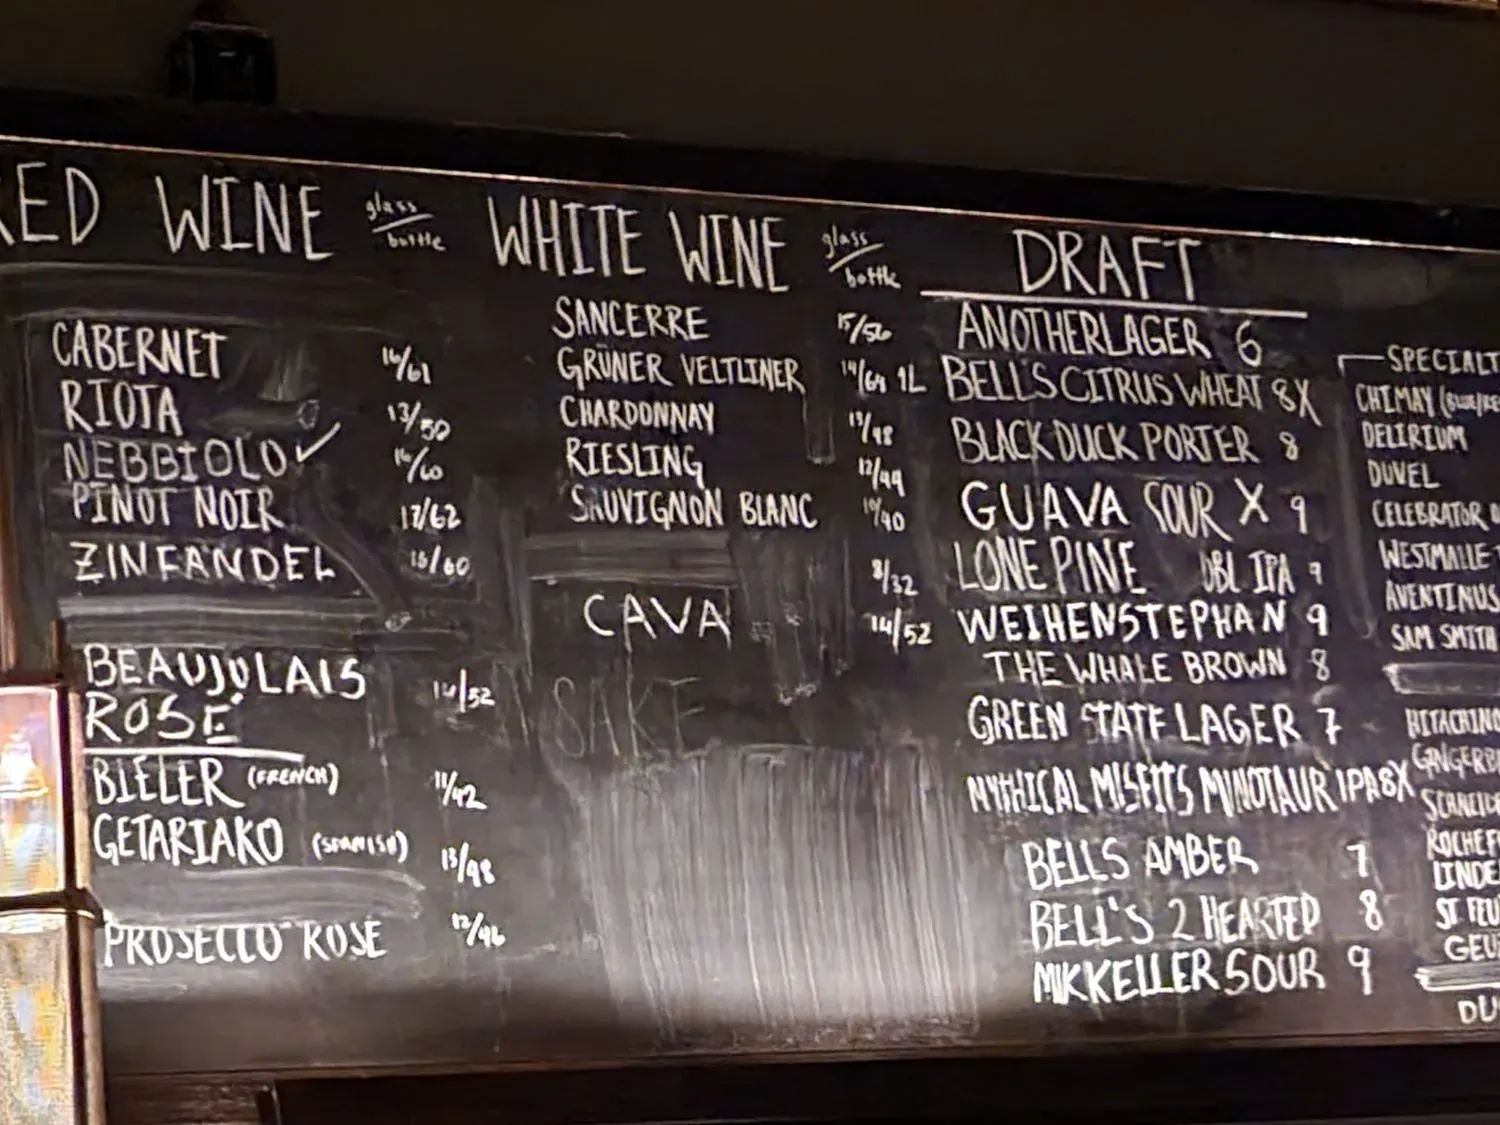 RED WINE glass/bottle
CABERNET 16/61
RIOJA 13/50
NEBBIOLO ✓ 16/60
PINOT NOIR 17/62
ZINFANDEL 15/60
BEAUJOLAIS 14/52
ROSÉ
BIELER (FRENCH) 11/42
GETARIAKO (SPANISH) 13/48
PROSECCO ROSE 12/46
WHITE WINE glass/bottle
SANCERRE 15/56
GRÜNER VELTLINER 14/64 1L
CHARDONNAY 13/48
RIESLING 12/44
SAUVIGNON BLANC 10/40
8/32
CAVA 14/52
SAKE
DRAFT
ANOTHERLAGER 6
BELL'S CITRUS WHEAT 8X
BLACK DUCK PORTER 8
GUAVA SOUR X 9
LONE PINE DBL IPA 9
WEIHENSTEPHAN 9
THE WHALE BROWN 8
GREEN STATE LAGER 7
MYTHICAL MISFITS MINOTAUR IPA 8X
BELLS AMBER 7
BELL'S 2 HEARTED 8
MIKKELLER SOUR 9
SPECIALT
CHIMAY (BLUE/RE
DELIRIUM
DUVEL
CELEBRATOR
WESTMALLE T
AVENTINUS
SAM SMITH
HITACHINO
GINGERB
SCHNEIDE
ROCHEF
LINDE
ST FEU
GEU
DU